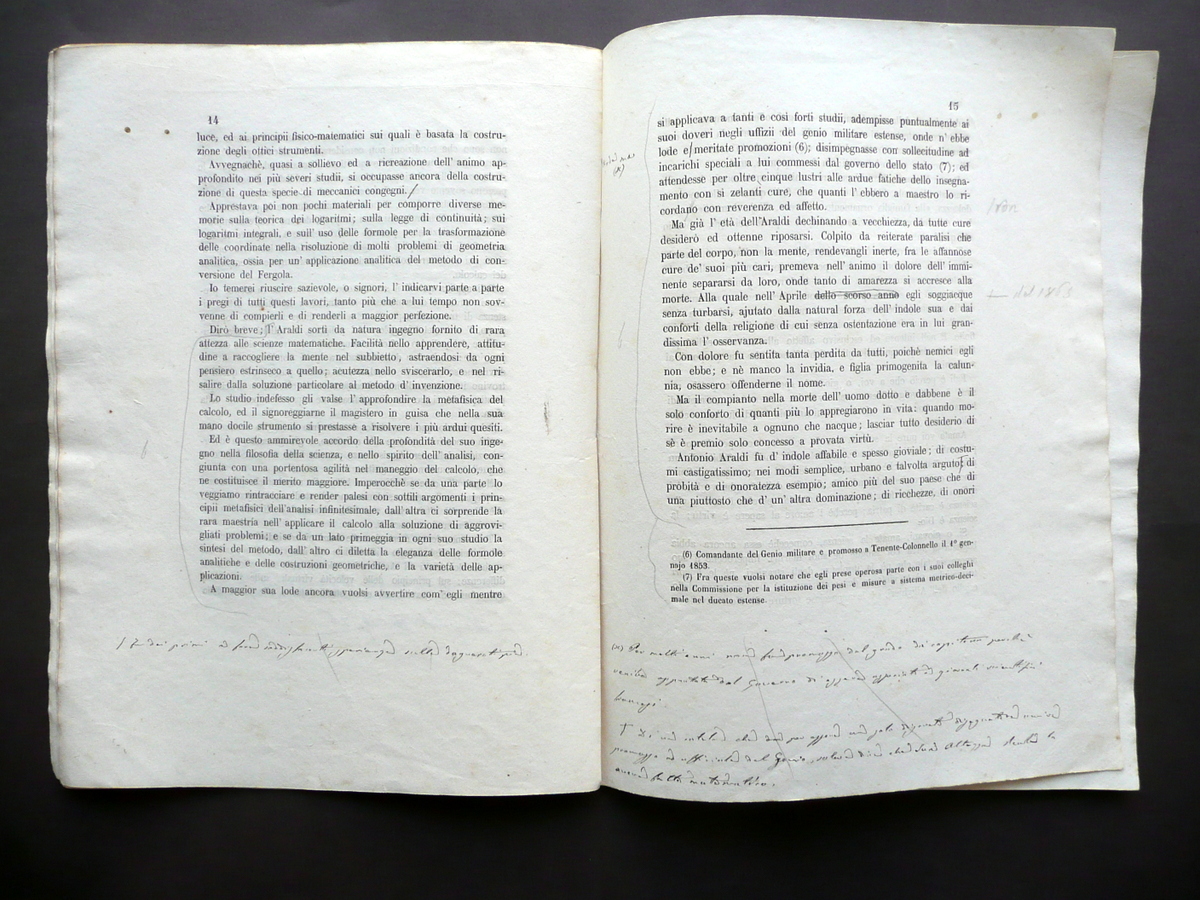 14
luce, ed ai principii fisico-matematici sui quali è basata la costru-
zione degli ottici strumenti.
Avvegnachè, quasi a sollievo ed a ricreazione dell' animo ap-
profondito nei più severi studii, si occupasse ancora della costru-
zione di questa specie di meccanici congegni.
Apprestava poi non pochi materiali per comporre diverse me-
morie sulla teorica dei logaritmi; sulla legge di continuità; sui
logaritmi integrali, e sull' uso delle formole per la trasformazione
delle coordinate nella risoluzione di molti problemi di geometria
analitica, ossia per un' applicazione analitica del metodo di con-
versione del Fergola.
Io temerei riuscire sazievole, o signori, l' indicarvi parte a parte
i pregi di tutti questi lavori, tanto più che a lui tempo non sov-
venne di compierli e di renderli a maggior perfezione.
Dirò breve; l' Araldi sortì da natura ingegno fornito di rara
attezza alle scienze matematiche. Facilità nello apprendere, attitu-
dine a raccogliere la mente nel subbietto, astraendosi da ogni
pensiero estrinseco a quello; acutezza nello sviscerarlo, e nel ri-
salire dalla soluzione particolare al metodo d' invenzione.
Lo studio indefesso gli valse l' approfondire la metafisica del
calcolo, ed il signoreggiarne il magistero in guisa che nella sua
mano docile strumento si prestasse a risolvere i più ardui quesiti.
Ed è questo ammirevole accordo della profondità del suo inge-
gno nella filosofia della scienza, e nello spirito dell' analisi, con-
giunta con una portentosa agilità nel maneggio del calcolo, che
ne costituisce il merito maggiore. Imperocchè se da una parte lo
veggiamo rintracciare e render palesi con sottili argomenti i prin-
cipii metafisici dell'analisi infinitesimale, dall'altra ci sorprende la
rara maestria nell' applicare il calcolo alla soluzione di aggrovi-
gliati problemi; e se da un lato primeggia in ogni suo studio la
sintesi del metodo, dall' altro ci diletta la eleganza delle formole
analitiche e delle costruzioni geometriche, e la varietà delle ap-
plicazioni.
A maggior sua lode ancora vuolsi avvertire com' egli mentre
15
si applicava a tanti e così forti studii, adempisse puntualmente ai
suoi doveri negli uffizii del genio militare estense, onde n' ebbe
lode e meritate promozioni (6); disimpegnasse con sollecitudine ad
incarichi speciali a lui commessi dal governo dello stato (7); ed
attendesse per oltre cinque lustri alle ardue fatiche dello insegna-
mento con sì zelanti cure, che quanti l' ebbero a maestro lo ri-
cordano con reverenza ed affetto.
Ma già l' età dell'Araldi dechinando a vecchiezza, da tutte cure
desiderò ed ottenne riposarsi. Colpito da reiterate paralisi che
parte del corpo, non la mente, rendevangli inerte, fra le affannose
cure de' suoi più cari, premeva nell' animo il dolore dell' immi-
nente separarsi da loro, onde tanto di amarezza si accresce alla
morte. Alla quale nell' Aprile dello scorso anno egli soggiacque
senza turbarsi, ajutato dalla natural forza dell' indole sua e dai
conforti della religione di cui senza ostentazione era in lui gran-
dissima l' osservanza.
Con dolore fu sentita tanta perdita da tutti, poichè nemici egli
non ebbe; e nè manco la invidia, e figlia primogenita la calun-
nia, osassero offenderne il nome.
Ma il compianto nella morte dell' uomo dotto e dabbene è il
solo conforto di quanti più lo appregiarono in vita: quando mo-
rire è inevitabile a ognuno che nacque; lasciar tutto desiderio di
sè è premio solo concesso a provata virtù.
Antonio Araldi fu d' indole affabile e spesso gioviale; di costu-
mi castigatissimo; nei modi semplice, urbano e talvolta arguto; di
probità e di onoratezza esempio; amico più del suo paese che di
una piuttosto che d' un' altra dominazione; di ricchezze, di onori
(6) Comandante del Genio militare e promosso a Tenente-Colonnello il 1º gen-
najo 1853.
(7) Fra queste vuolsi notare che egli prese operosa parte con i suoi colleghi
nella Commissione per la istituzione dei pesi e misure a sistema metrico-deci-
male nel ducato estense.